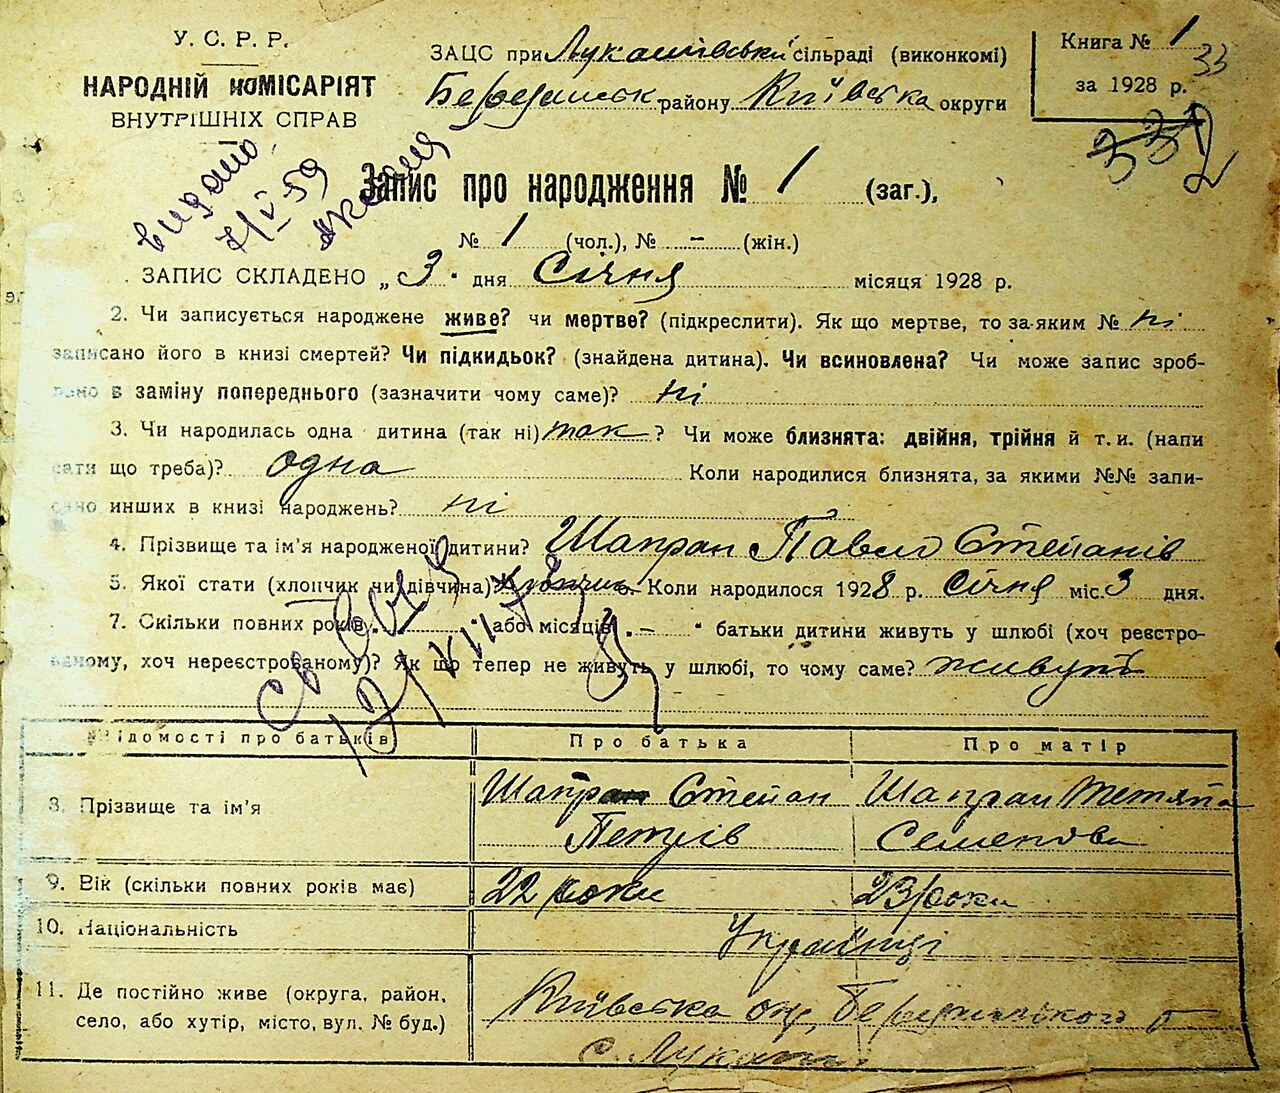 У. С. Р. Р.
НАРОДНІЙ КОМІСАРІЯТ
ВНУТРІШНІХ СПРАВ
ЗАЦС при Лукашівській сільраді (виконкомі)
району Київська округи
Книга № 1
33
за 1928 р.
332
видано
7/V-59
Запис про народження № 1 (заг.),
№ 1 (чол.), № - (жін.)
ЗАПИС СКЛАДЕНО „3" дня Січня місяця 1928 р.
2. Чи записується народжене живе? чи мертве? (підкреслити). Як що мертве, то за яким № ні
записано його в книзі смертей? Чи підкидьок? (знайдена дитина). Чи всиновлена? Чи може запис зроб-
лено в заміну попереднього (зазначити чому саме)? ні
3. Чи народилась одна дитина (так ні) так? Чи може близнята: двійня, трійня й т. и. (напи
сати що треба)? одна Коли народилися близнята, за якими №№ запи-
сано инших в книзі народжень? ні
4. Прізвище та ім'я народженої дитини? Шапран Павло Степанів
5. Якої стати (хлопчик чи дівчина) Хлопчик. Коли народилося 1928 р. Січня міс. 3 дня.
7. Скільки повних років або місяців „-" батьки дитини живуть у шлюбі (хоч реєстро-
ваному, хоч нереєстрованому)? Як що тепер не живуть у шлюбі, то чому саме? живуть
Відомості про батьків Про батька Про матір
8. Прізвище та ім'я Шапран Степан Петрів Шапран Тетяна Семенова
9. Вік (скільки повних років має) 22 роки 23 роки
10. Національність Українці
11. Де постійно живе (округа, район, Київська окр,
село, або хутір, місто, вул. № буд.) с.